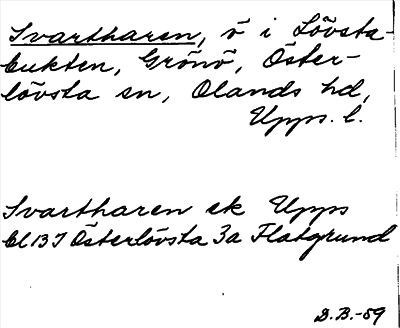 Svartharen, ö i Lövsta-
bukten, Grönö, Öster-
lövsta sn, Olands hd,
Upps. l.
Svartharen ek Upps
bl 137 Österlövsta 3a Flatgrund
D.B.-59